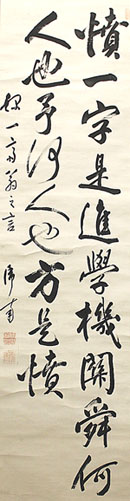 憤一字是進學機關舜何
人也予何人也方是憤
一齋翁之言